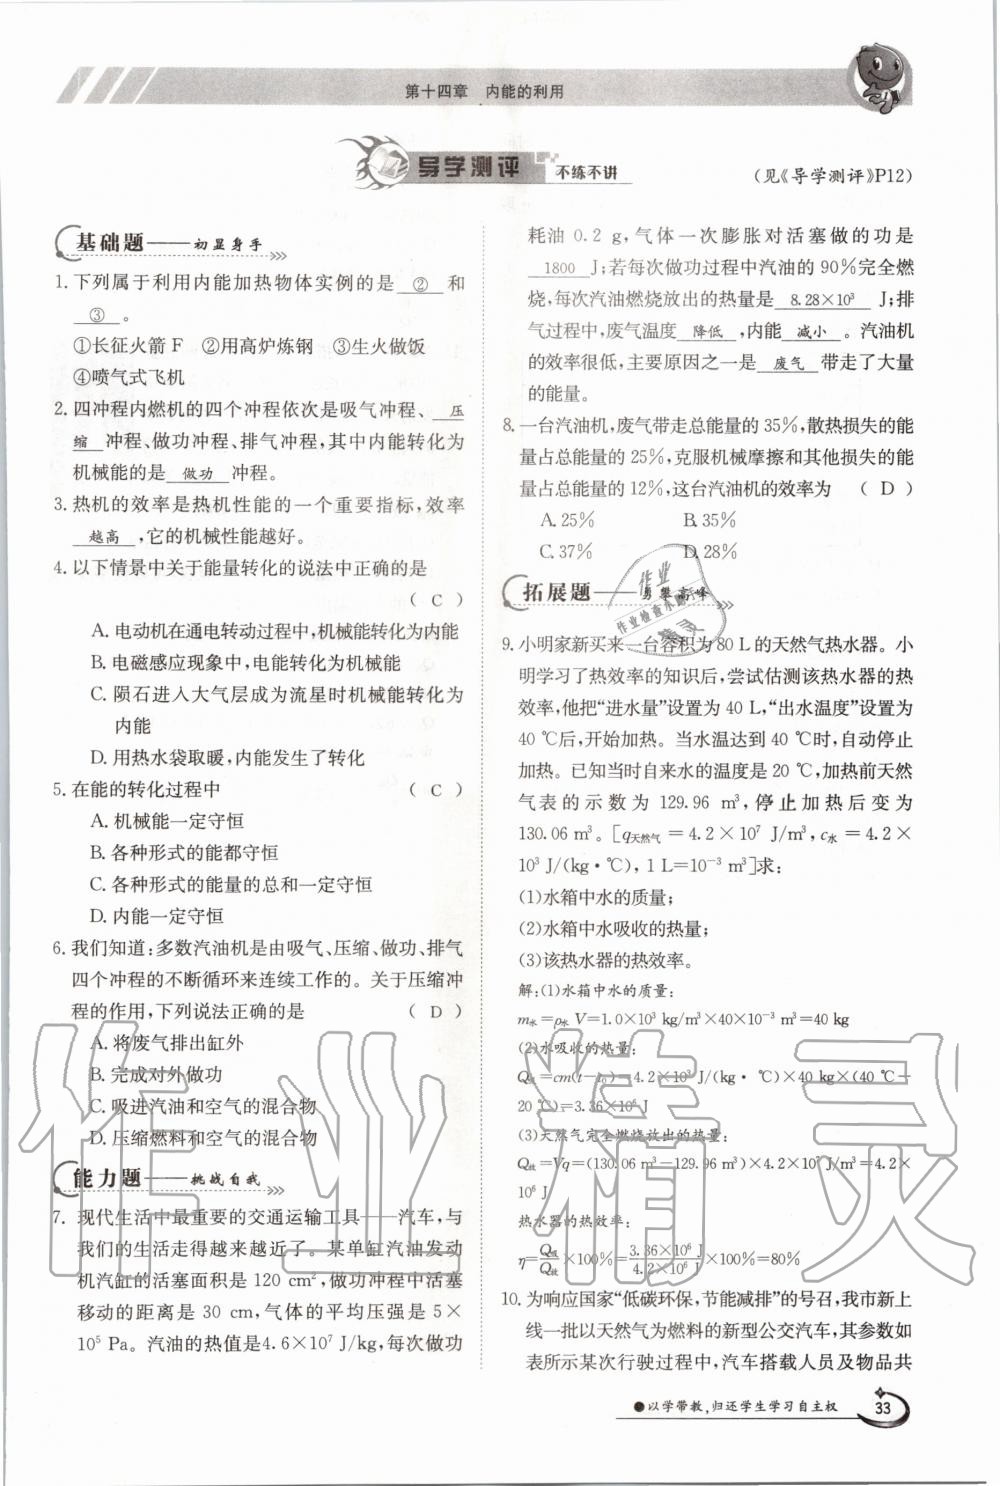 第十四章 内能的利用
导学测评 不练不讲
(见《导学测评》P12)
基础题——初显身手
1. 下列属于利用内能加热物体实例的是 ② 和
③ 。
①长征火箭 F ②用高炉炼钢 ③生火做饭
④喷气式飞机
2. 四冲程内燃机的四个冲程依次是吸气冲程、 压
缩 冲程、做功冲程、排气冲程,其中内能转化为
机械能的是 做功 冲程。
3. 热机的效率是热机性能的一个重要指标,效率
越高 ,它的机械性能越好。
4. 以下情景中关于能量转化的说法中正确的是
( C )
A. 电动机在通电转动过程中,机械能转化为内能
B. 电磁感应现象中,电能转化为机械能
C. 陨石进入大气层成为流星时机械能转化为
内能
D. 用热水袋取暖,内能发生了转化
5. 在能的转化过程中 ( C )
A. 机械能一定守恒
B. 各种形式的能都守恒
C. 各种形式的能量的总和一定守恒
D. 内能一定守恒
6. 我们知道:多数汽油机是由吸气、压缩、做功、排气
四个冲程的不断循环来连续工作的。关于压缩冲
程的作用,下列说法正确的是 ( D )
A. 将废气排出缸外
B. 完成对外做功
C. 吸进汽油和空气的混合物
D. 压缩燃料和空气的混合物
能力题——挑战自我
7. 现代生活中最重要的交通运输工具——汽车,与
我们的生活走得越来越近了。某单缸汽油发动
机汽缸的活塞面积是 120 cm²,做功冲程中活塞
移动的距离是 30 cm,气体的平均压强是 5×
10⁵ Pa。汽油的热值是4.6×10⁷ J/kg,每次做功
耗油 0.2 g,气体一次膨胀对活塞做的功是
1800 J;若每次做功过程中汽油的 90%完全燃
烧,每次汽油燃烧放出的热量是 8.28×10³ J;排
气过程中,废气温度 降低 ,内能 减小 。汽油机
的效率很低,主要原因之一是 废气 带走了大量
的能量。
8. 一台汽油机,废气带走总能量的 35%,散热损失的能
量占总能量的 25%,克服机械摩擦和其他损失的能
量占总能量的 12%,这台汽油机的效率为 ( D )
A. 25% B. 35%
C. 37% D. 28%
拓展题——勇攀高峰
9. 小明家新买来一台容积为 80 L 的天然气热水器。小
明学习了热效率的知识后,尝试估测该热水器的热
效率,他把“进水量”设置为 40 L,“出水温度”设置为
40 ℃后,开始加热。当水温达到 40 ℃时,自动停止
加热。已知当时自来水的温度是 20 ℃,加热前天然
气表的示数为 129.96 m³,停止加热后变为
130.06 m³。[q天然气=4.2×10⁷ J/m³,c水=4.2×
10³ J/(kg·℃),1 L=10⁻³ m³]求:
(1)水箱中水的质量;
(2)水箱中水吸收的热量;
(3)该热水器的热效率。
解:(1)水箱中水的质量:
m水=ρ水 V=1.0×10³ kg/m³×40×10⁻³ m³=40 kg
(2)水吸收的热量:
Q吸=cm(t-t₀)=4.2×10³ J/(kg·℃)×40 kg×(40 ℃-
20 ℃)=3.36×10⁶ J
(3)天然气完全燃烧放出的热量:
Q放=Vq=(130.06 m³-129.96 m³)×4.2×10⁷ J/m³=4.2×
10⁶ J
热水器的热效率:
η=Q吸/Q放×100%=3.36×10⁶ J/4.2×10⁶ J×100%=80%
10. 为响应国家“低碳环保,节能减排”的号召,我市新上
线一批以天然气为燃料的新型公交汽车,其参数如
表所示某次行驶过程中,汽车搭载人员及物品共
●以学带教,归还学生学习自主权 33
作业
作业精灵